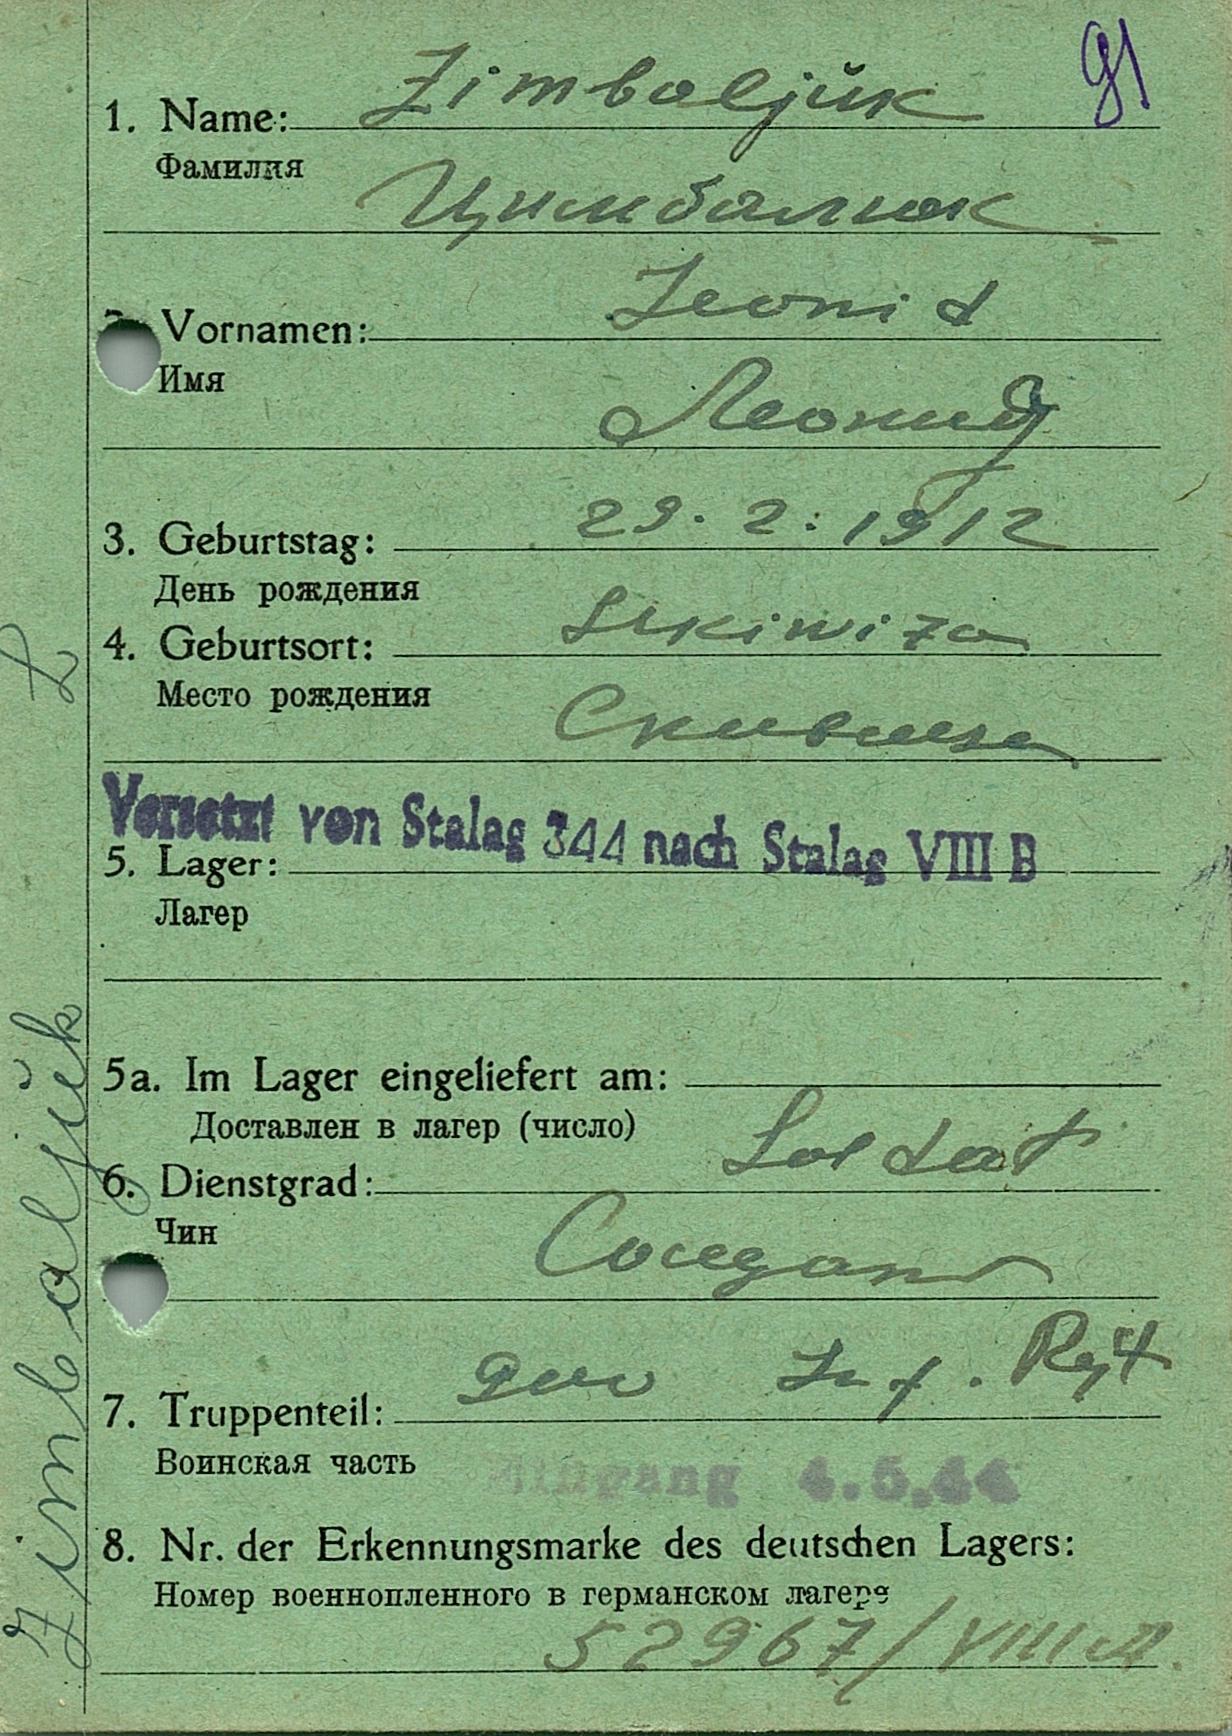 91
1. Name: Zimbaljŭk
Фамилия
Цимбалюк
Vornamen: Leonid
Имя
Леонид
3. Geburtstag: 29. 2. 1912
День рождения
4. Geburtsort:
Место рождения
Versetzt von Stalag 344 nach Stalag VIII B
5. Lager:
Лагер
5a. Im Lager eingeliefert am:
Доставлен в лагер (число)
6. Dienstgrad: Soldat
Чин
Солдат
7. Truppenteil: Inf. Rgt
Воинская часть
Eingang 4.5.44
8. Nr. der Erkennungsmarke des deutschen Lagers:
Номер военнопленного в германском лагере
52967/VIII A.
Zimbaljŭk L